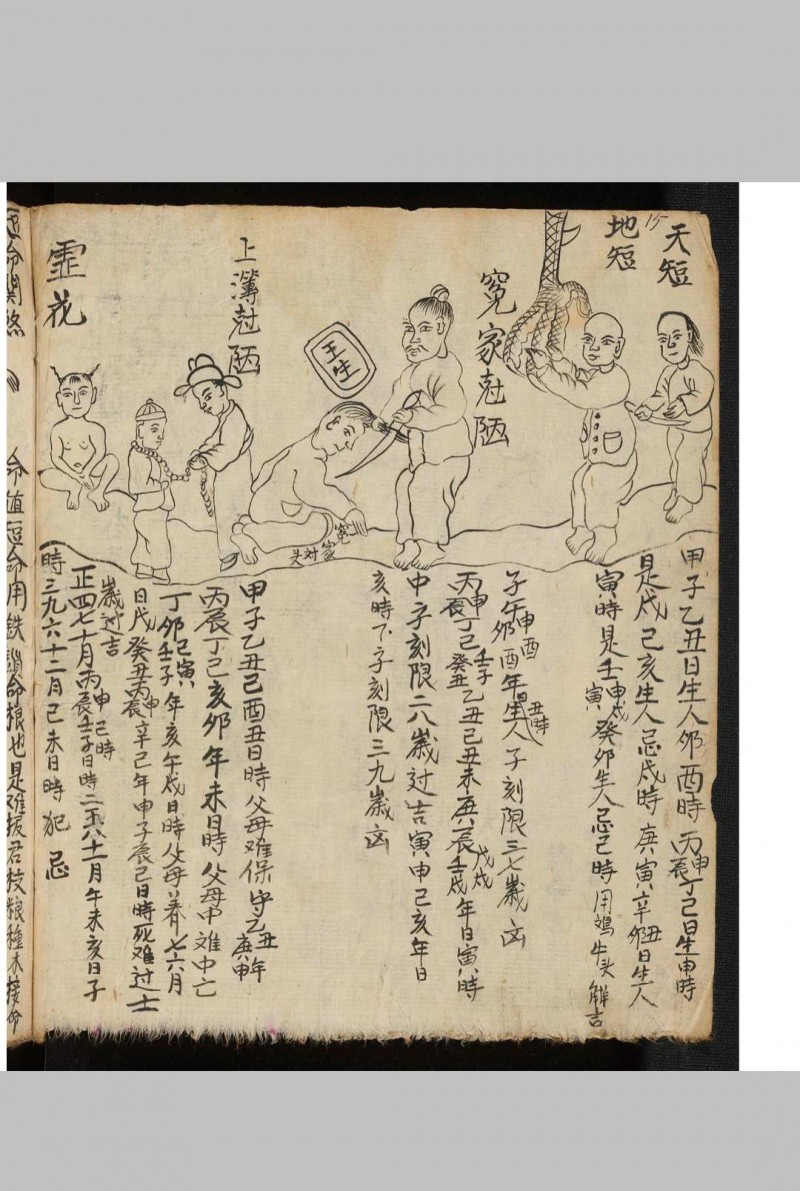 15
天短
地短
冤家尅陋
王生
上簿尅陋
霊花
冤家对头
甲子乙丑日生人卯酉時丙申丙辰丁己日生申時
是戍己亥生人忌戍時庚寅辛卯丑日生人
寅時是壬申戍寅癸卯生人忌己時用鴉牛头觧吉
子午卯酉申酉年生人丑時子刻限三七歲凶
丙申丙辰丁己壬子癸丑乙丑己丑未庚辰壬戍戊戍年日寅時
中子刻限二八歲过吉寅申己亥年日
亥時下子刻限三九歲凶
甲子乙丑己酉丑日時父母难保守乙丑庚申年
丙辰丁己亥卯年未日時父母中难中亡
丁卯己寅壬子年亥午戍日時父母養七六月
日戍癸丑丙申丙辰辛己年申子辰己日時死难过士
歲过吉
正四七十月丙申丙辰壬子己時日時二五八十一月午未亥日子
時三九六十二月己未日時犯忌
短命関煞
命值短命用铁鎖命粮也是难援君枝粮種木接命